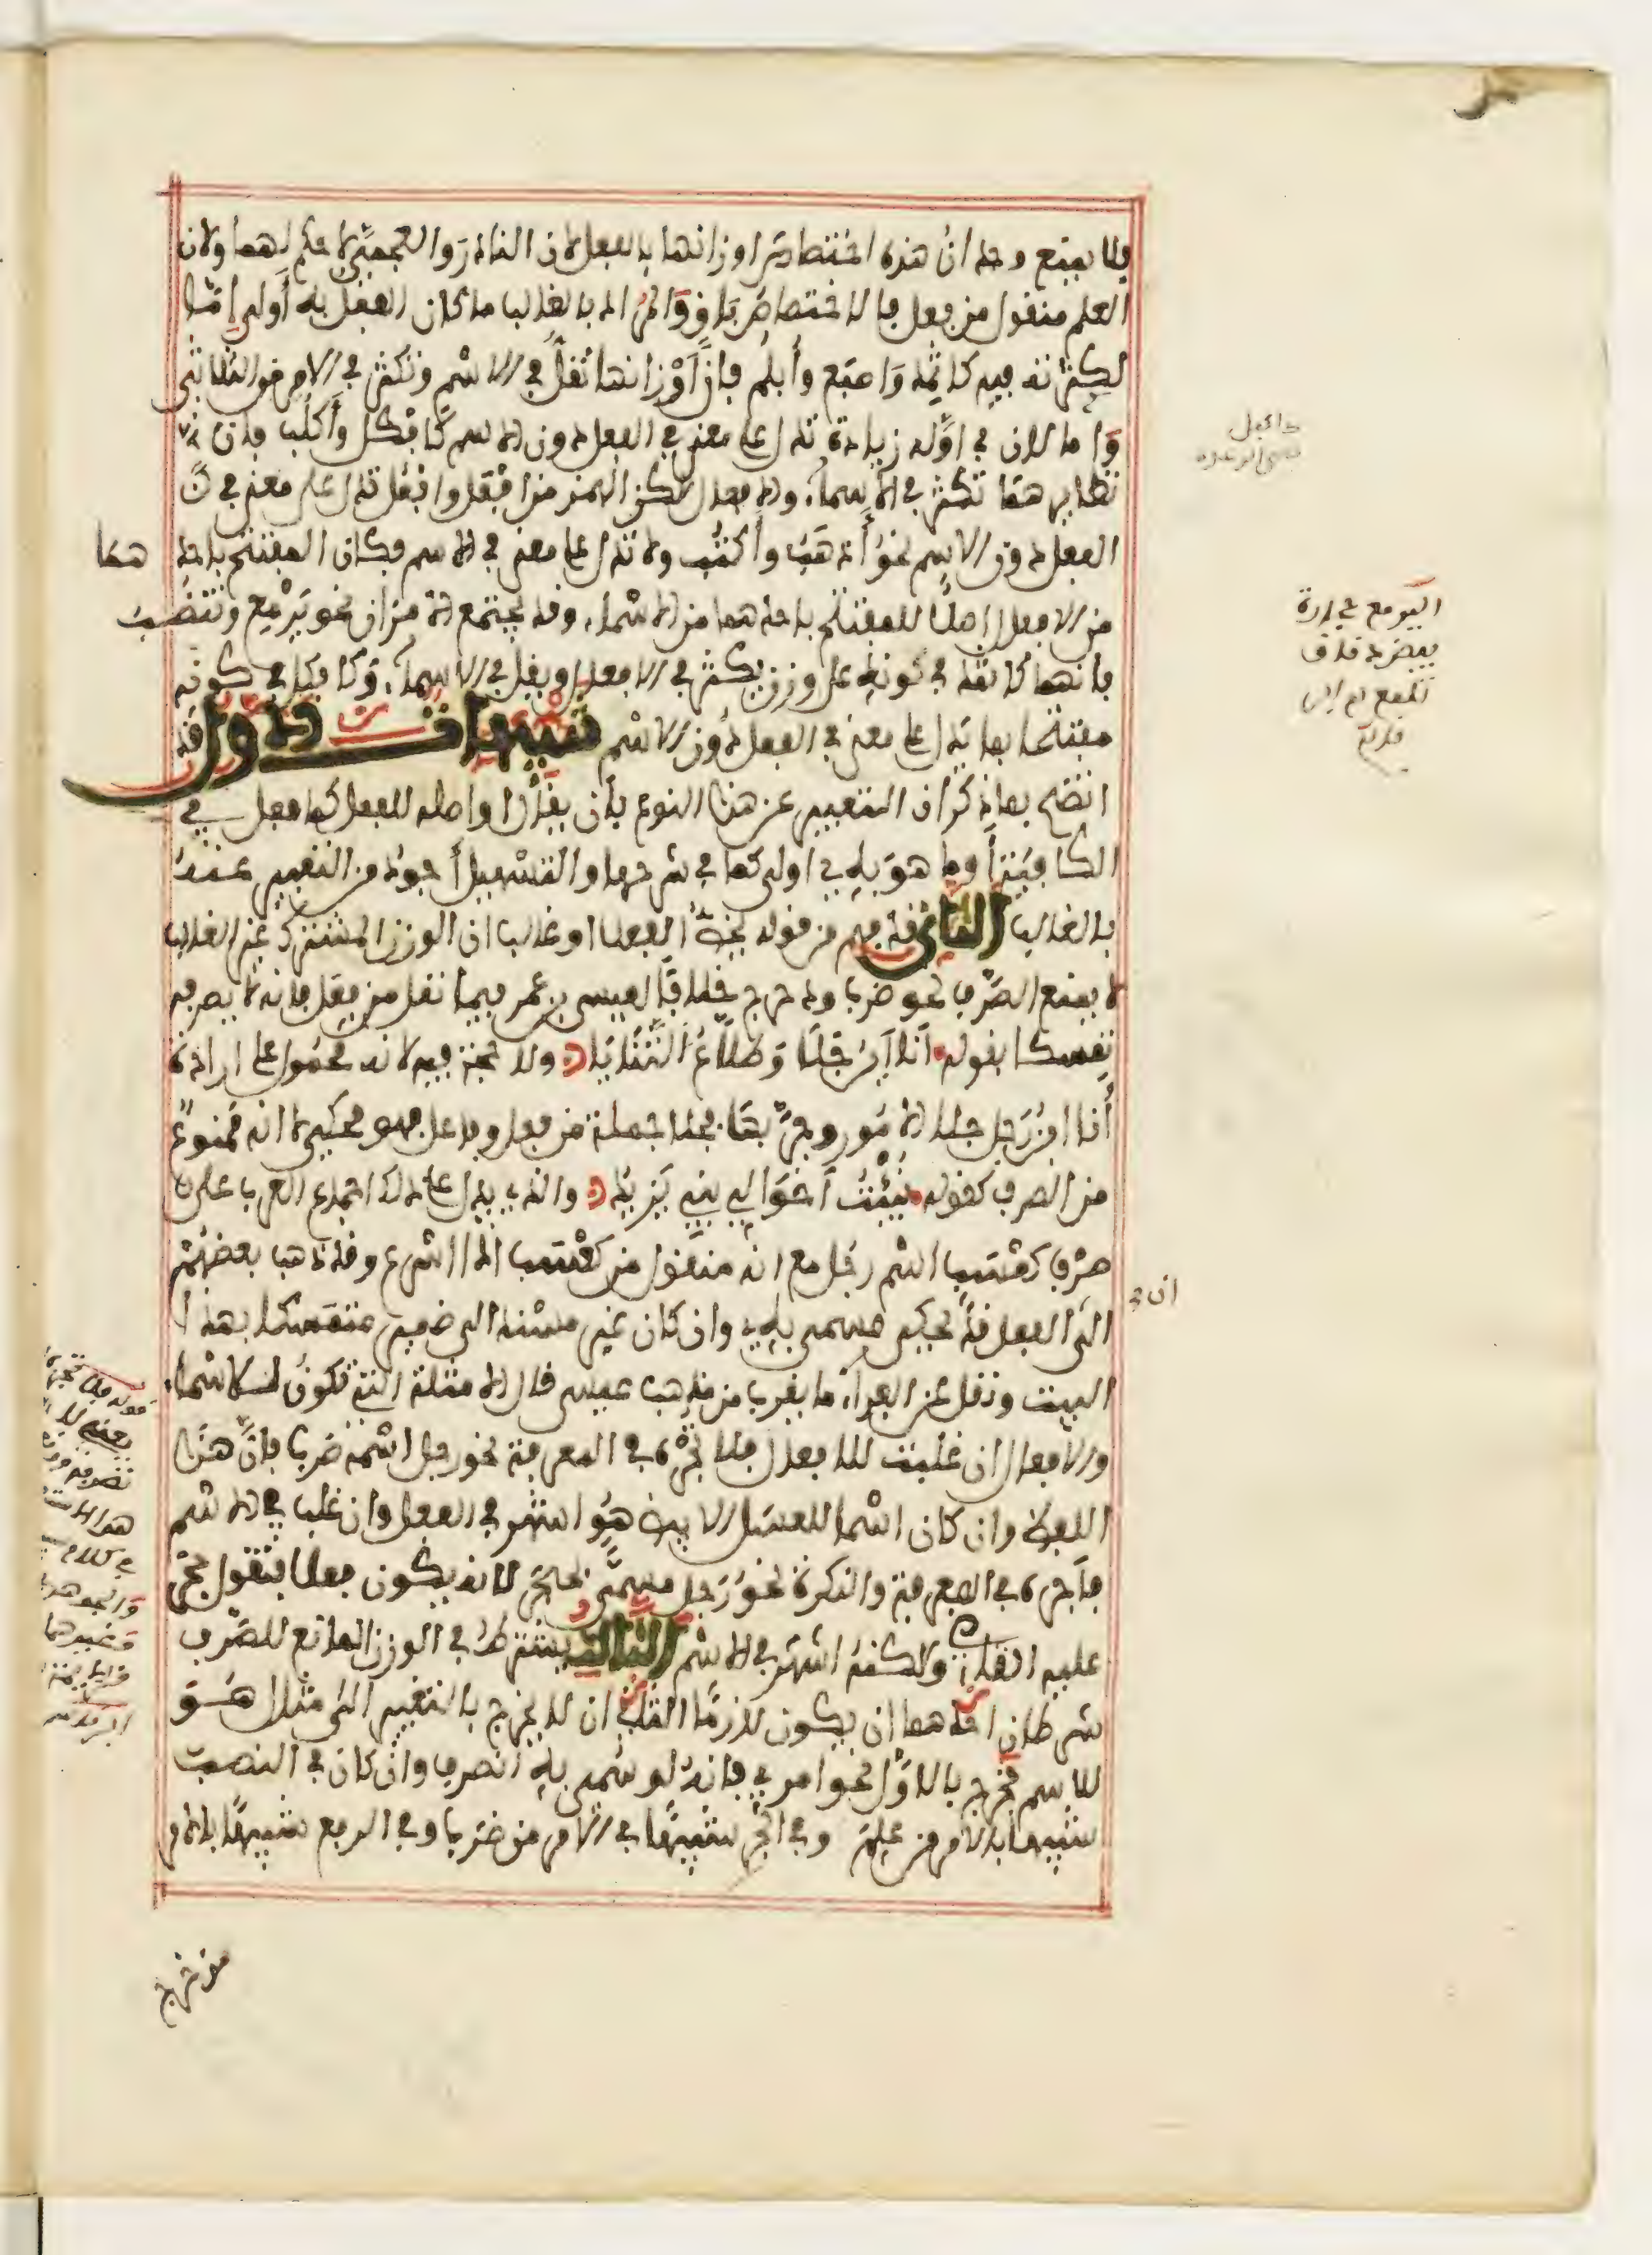 فلا يمنع وجدان هذه اختصاص اوزانها بالفعل لان النادر والعجمي لا حكم لهما ولان
العلم منقول من فعل فالاختصاص باق والمراد بالغالب ما كان الفعل به أولى إما
لكثرته فيه كاثمد واصبع وأبلم فإن أوزانها تقل في الاسم وتكثر في الامر من الثلاثي
وإما لان في أوله زيادة تدل على معنى في الفعل دون الاسم كأفكل وأكلب فان
نظايرهما تكثر في الأسماء والافعال لكن الهمز من افعل وافعل تدل على معنى في
الفعل دون الاسم نحو أذهب وأكتب ولا تدل على معنى في الاسم فكان المفتتح باحدهما
من الافعال اصلا للمفتتح باحدهما من الاسماء وقد يجتمع الامران نحو يرمع وتنضب
فانهما كاثمد في كونه على وزن يكثر في الافعال ويقل في الاسماء وكأفكل في كونه
مفتتحا بما يدل على معنى في الفعل دون الاسم تنبيهات الاول قد
اتضح بما ذكر ان التعبير عن هذا النوع بأن يقال او اصله للفعل كما فعل في
الكافية أو ما هو به اولى كما في شرحها والتسهيل أجود من التعبير عنه
بالغالب الثاني قد فهم من قوله يخص الفعل او غالب ان الوزن المشترك غير الغالب
لا يمنع الصرف نحو ضرب ودحرج خلافا لعيسى بن عمر فيما نقل من فعل فانه لا يصرفه
تمسكا بقوله أنا ابن جلا وطلاع الثنايا ولا حجة فيه لانه محمول على ارادة
أنا ابن رجل جلا الأمور وجربها فجلا جملة من فعل وفاعل فهو محكي لا انه ممنوع
من الصرف كقوله نبئت أخوالي بني يزيد والذي يدل على ذلك اجماع العرب على
صرف كعسب اسم رجل مع انه منقول من كعسب اذا اسرع وقد ذهب بعضهم
الى ان الفعل قد يحكى مسمى به وان كان غير مسند الى ضمير متمسكا بهذا
البيت ونقل عن الفراء ما يقرب من مذهب عيسى قال الامثلة التي تكون للاسماء
والافعال ان غلبت للافعال فلا تجره في المعرفة نحو رجل اسمه ضرب فإن هذا
اللفظ وان كان اسما للعسل الابيض هو اشهر في الفعل وان غلب في الاسم
فأجره في المعرفة والنكرة نحو رجل مسمى بحجر لانه يكون فعلا فتقول حجر
عليه القاضي ولكنه اشهر في الاسم الثالث يشترط في الوزن المانع للصرف
شرطان احدهما ان يكون لازما الثاني ان لا يخرج بالتغيير الى مثال هو
للاسم فخرج بالاول نحو امرئ فانه لو سمي به انصرف وان كان في النصب
شبيها بالامر من علم وفي الجر شبيها في الامر من ضرب وفي الرفع شبيها بالامر
من خرج
اليرمع حجارة
بيض دقاق
تلمع